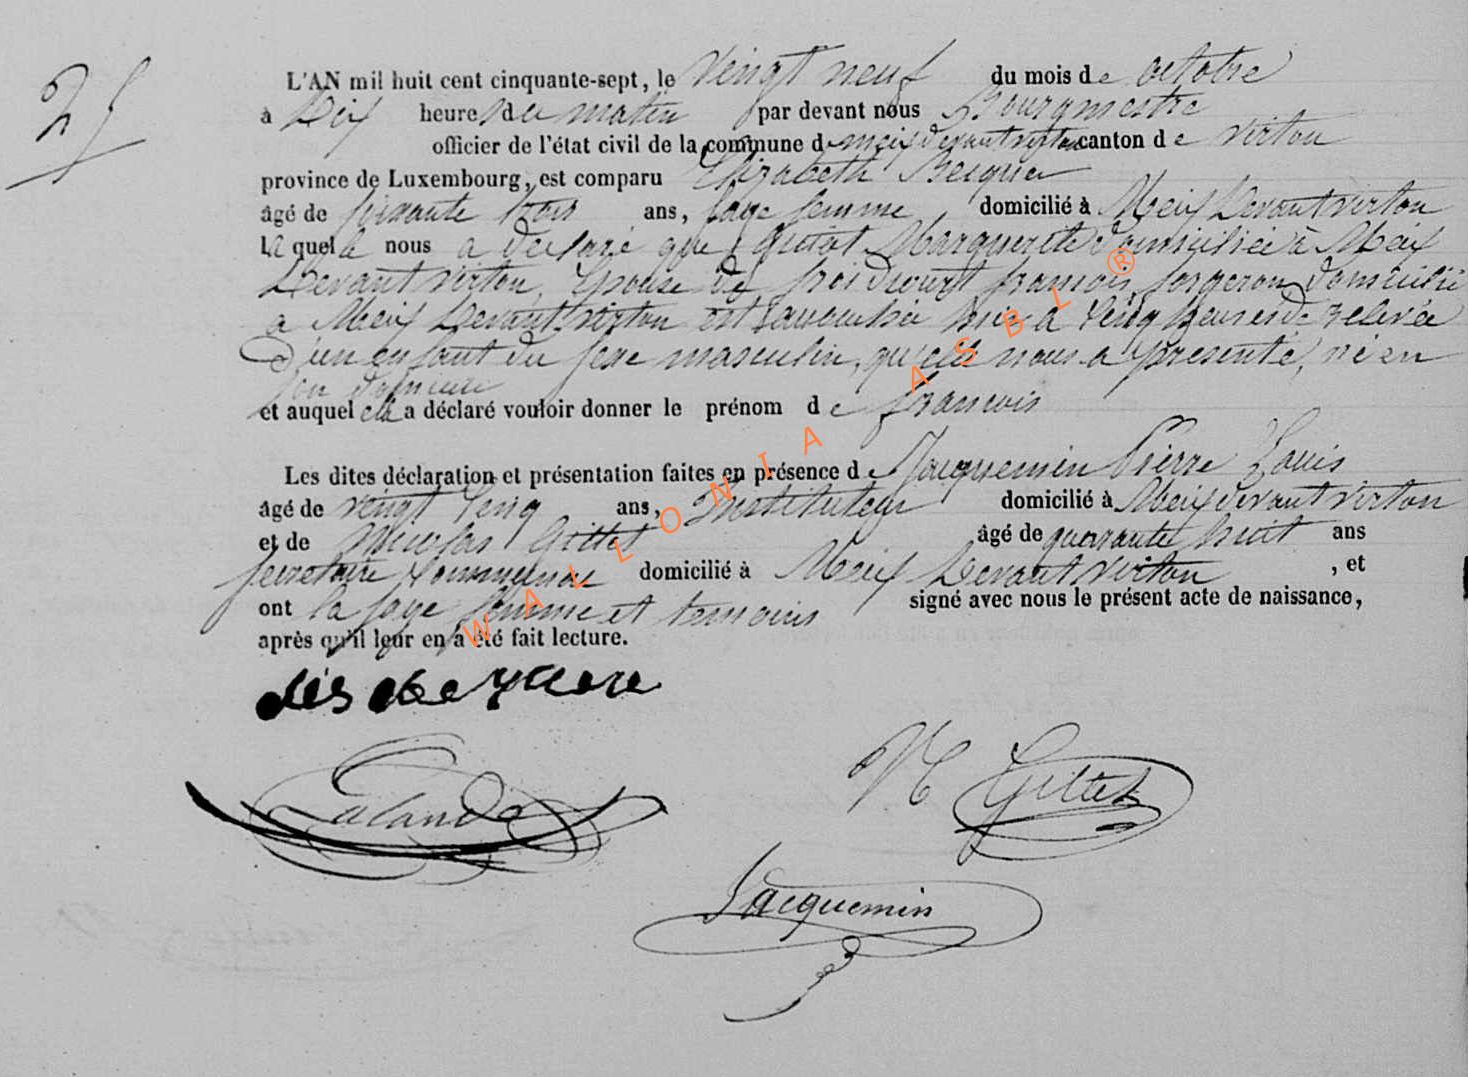 25
L'AN mil huit cent cinquante-sept, le vingt neuf du mois de octobre
à Dix heures du matin par devant nous Bourgmestre
officier de l'état civil de la commune de meix devant virton canton de virton
province de Luxembourg, est comparu Elizabeth
âgé de soixante trois ans, sage femme domicilié à Meix Devant virton
la quelle nous a déclaré que Guiot Marguerite domiciliée à Meix
Devant virton, Epouse de froidcourt françois forgeron domicilié
à Meix Devant virton est accouchée hier à cinq heures de relevée
d'un enfant du sexe masculin, qu'elle nous a présenté, né en
son domicile
et auquel elle a déclaré vouloir donner le prénom de françois
Les dites déclaration et présentation faites en présence de Jacquemin Pierre Louis
âgé de vingt cinq ans, Instituteur domicilié à Meix devant virton
et de Nicolas Gillet âgé de quarante huit ans
secretaire Communal domicilié à Meix Devant virton, et
ont la sage femme et temoins signé avec nous le présent acte de naissance,
après qu'il leur en a été fait lecture.
Lalande
N Gillet
Jacquemin
WALLONIA ASBL ®